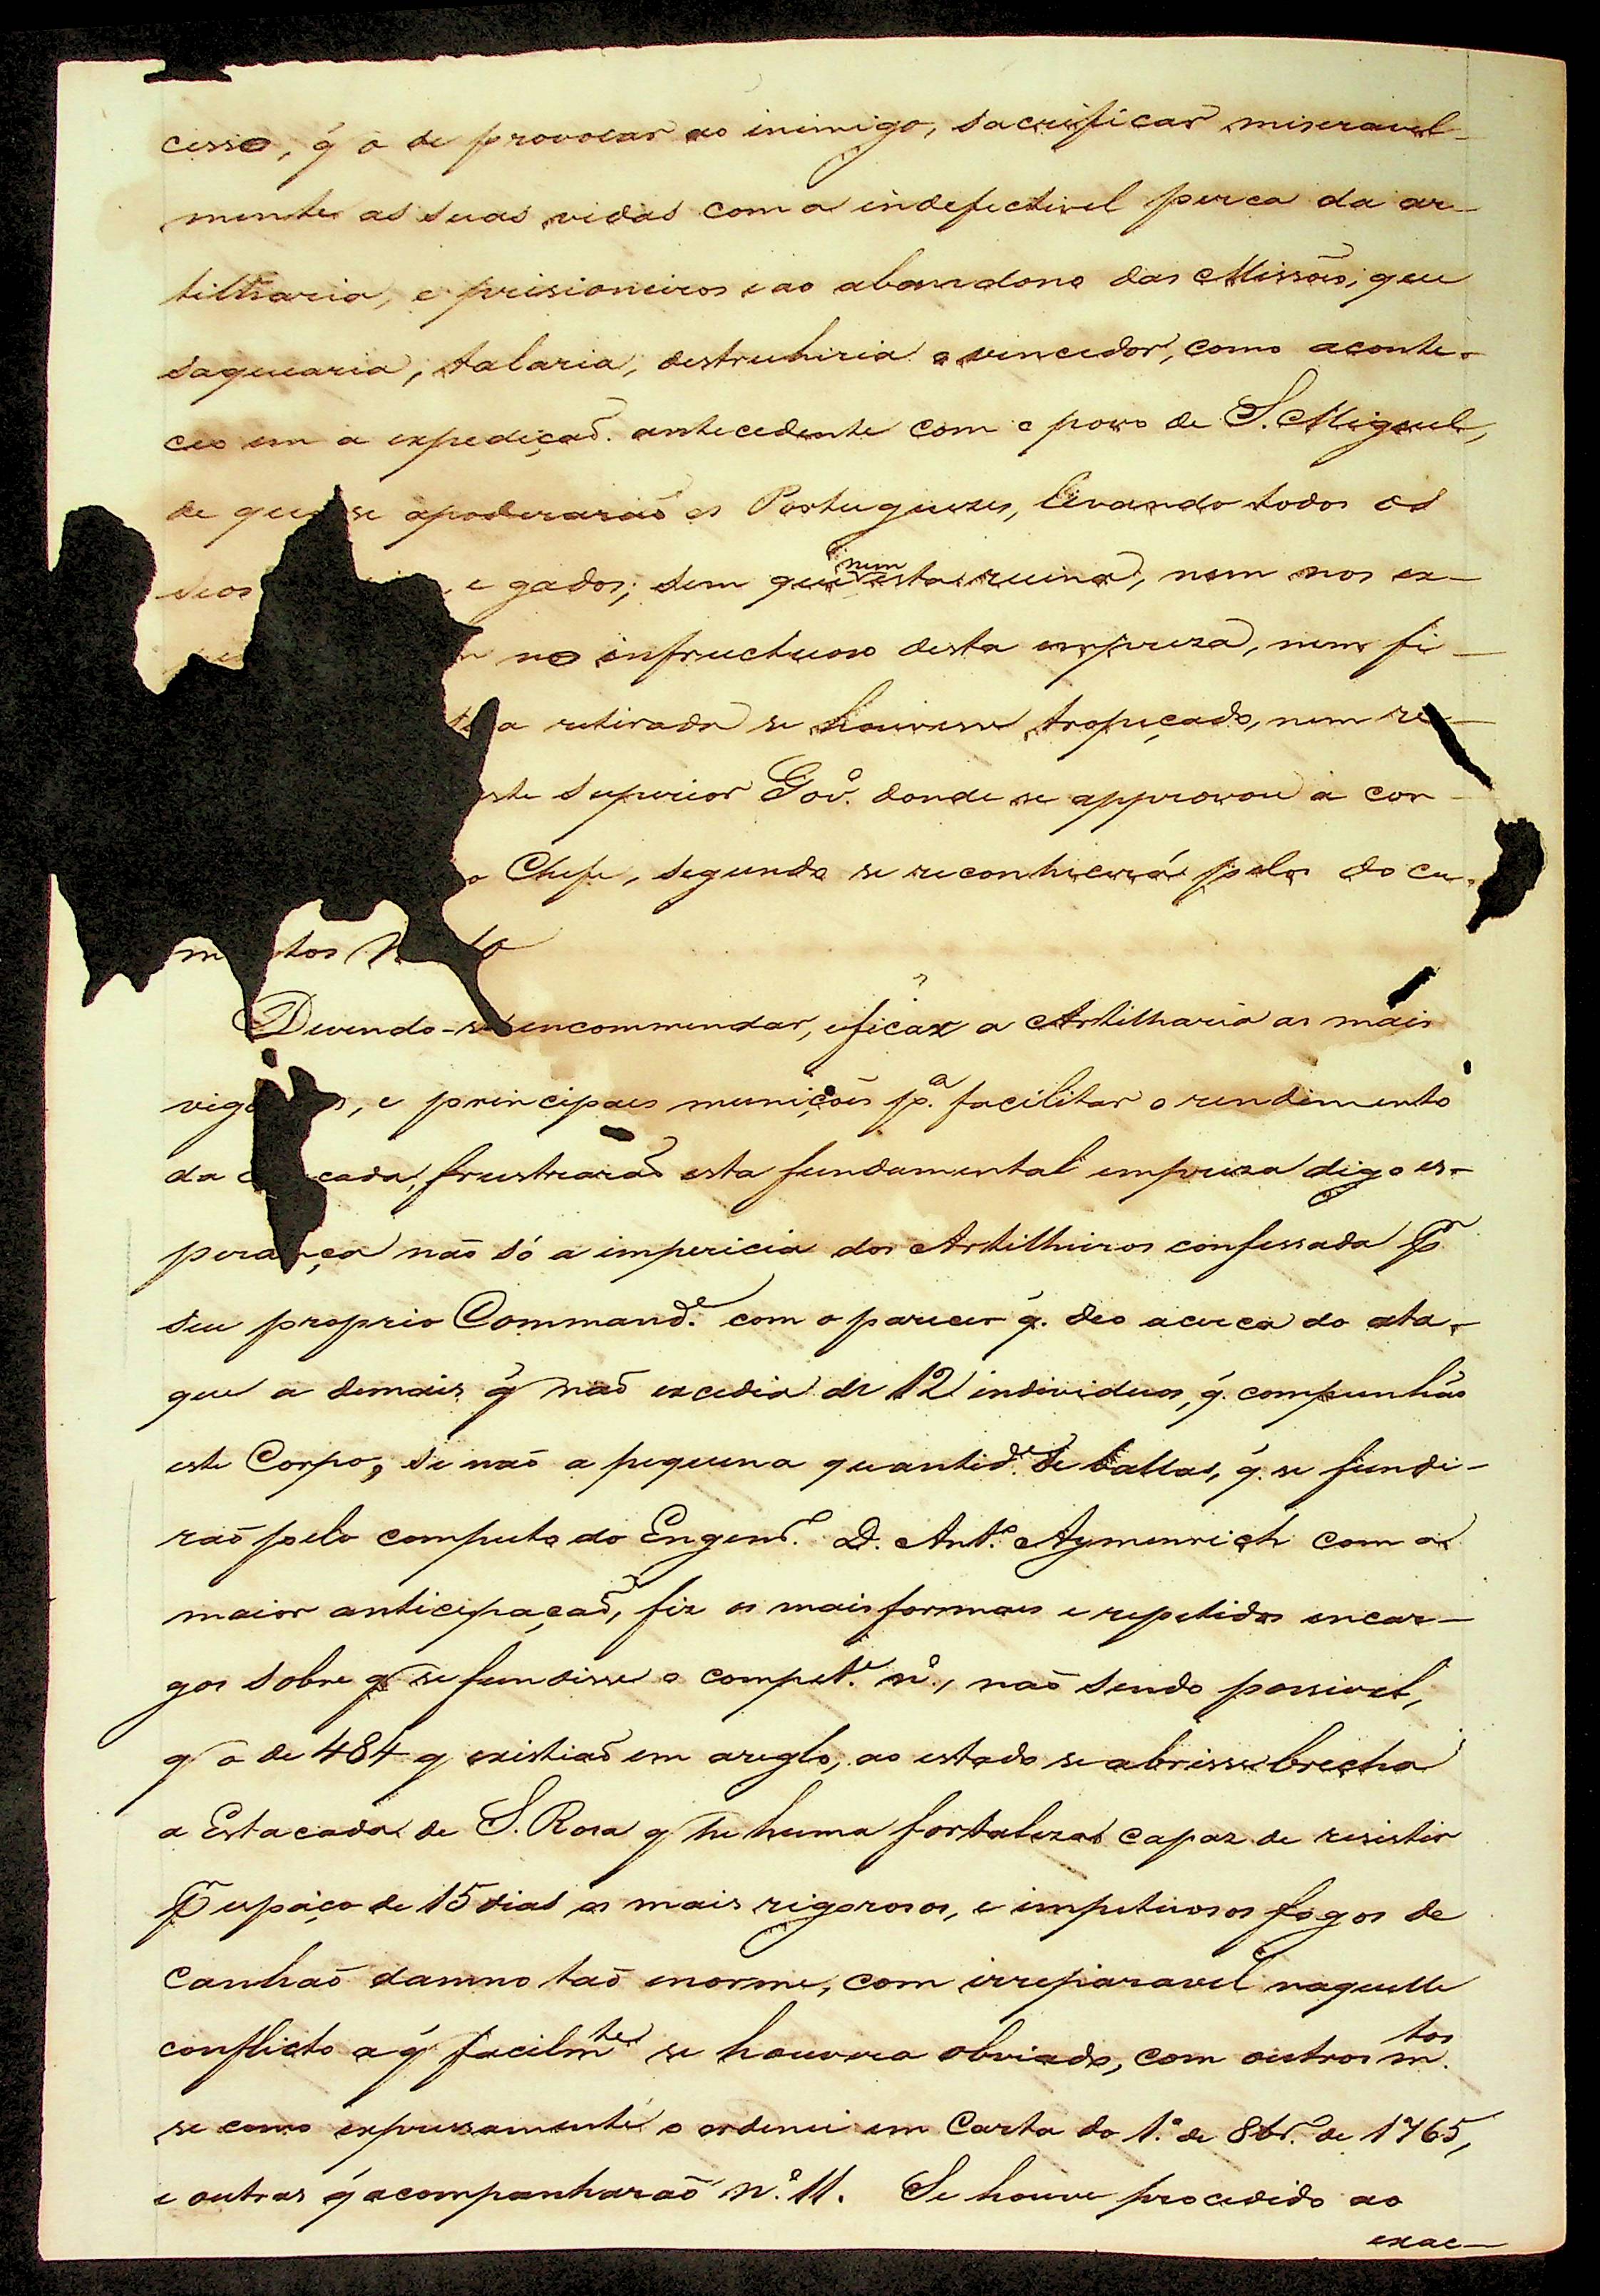 cesso, q̃ o de provocar ao inimigo, sacrificar miseravel-
mente as suas vidas com a indefectivel perca da ar-
tilharia, e prisioneiros e ao abandono das Missões, que
saquearia, talaria, destruhiria o vencedor, como aconte-
ceo em a expediçaõ antecedente com o povo de S. Miguel,
de que se apoderaraõ os Portuguezes, levando todos os
seos e gados; sem que nem esta ruina, nem nos ex-
no infructuoso desta empreza, nem fi-
a retirada se houvesse tropeçado, nem re-
este superior Gov.º donde se approvou a con-
o Chefe, segundo se reconhecerá pelos docu-
m tos N 10
Devendo-se encommendar, eficaz a Artilharia as mais
vigo s, e principaes munições p.ª facilitar o rendimento
da cada, frustraraõ esta fundamental empreza digo es-
perança não só a impericia dos Artilheiros confessada p.r
seu proprio Command.e com o parecer q̃. deo acerca do ata-
que a demais q̃ naõ excedia de 12 individuos, q̃. compunhão
este Corpo, se naõ a pequena quantid.e de ballas, q̃. se fundi-
raõ pelo computo do Engenr.o D. Ant.o Aymenrich com a
maior anticipaçaõ, fiz os mais formaes e repetidos encar-
gos sobre q̃ se fundisse o compet.e n.º, naõ sendo possivel,
q̃ o de 484 q̃ existiaõ em areglo, ao estado se abrisse brecha
a Estacada de S. Rosa q̃ he huma fortaleza capaz de resistir
p.r espaço de 15 dias os mais rigorosos, e impetuosos fogos de
Canhaõ damno taõ enorme, com irreparavel naquelle
conflicto a q̃ facilm.te se houvera obviado, com outros m.tos
se como expressamente o ordenei em Carta do 1.º de 8br.o de 1765,
e outras q̃ acompanharaõ N.º 11. Se houve procedido ao
exac-